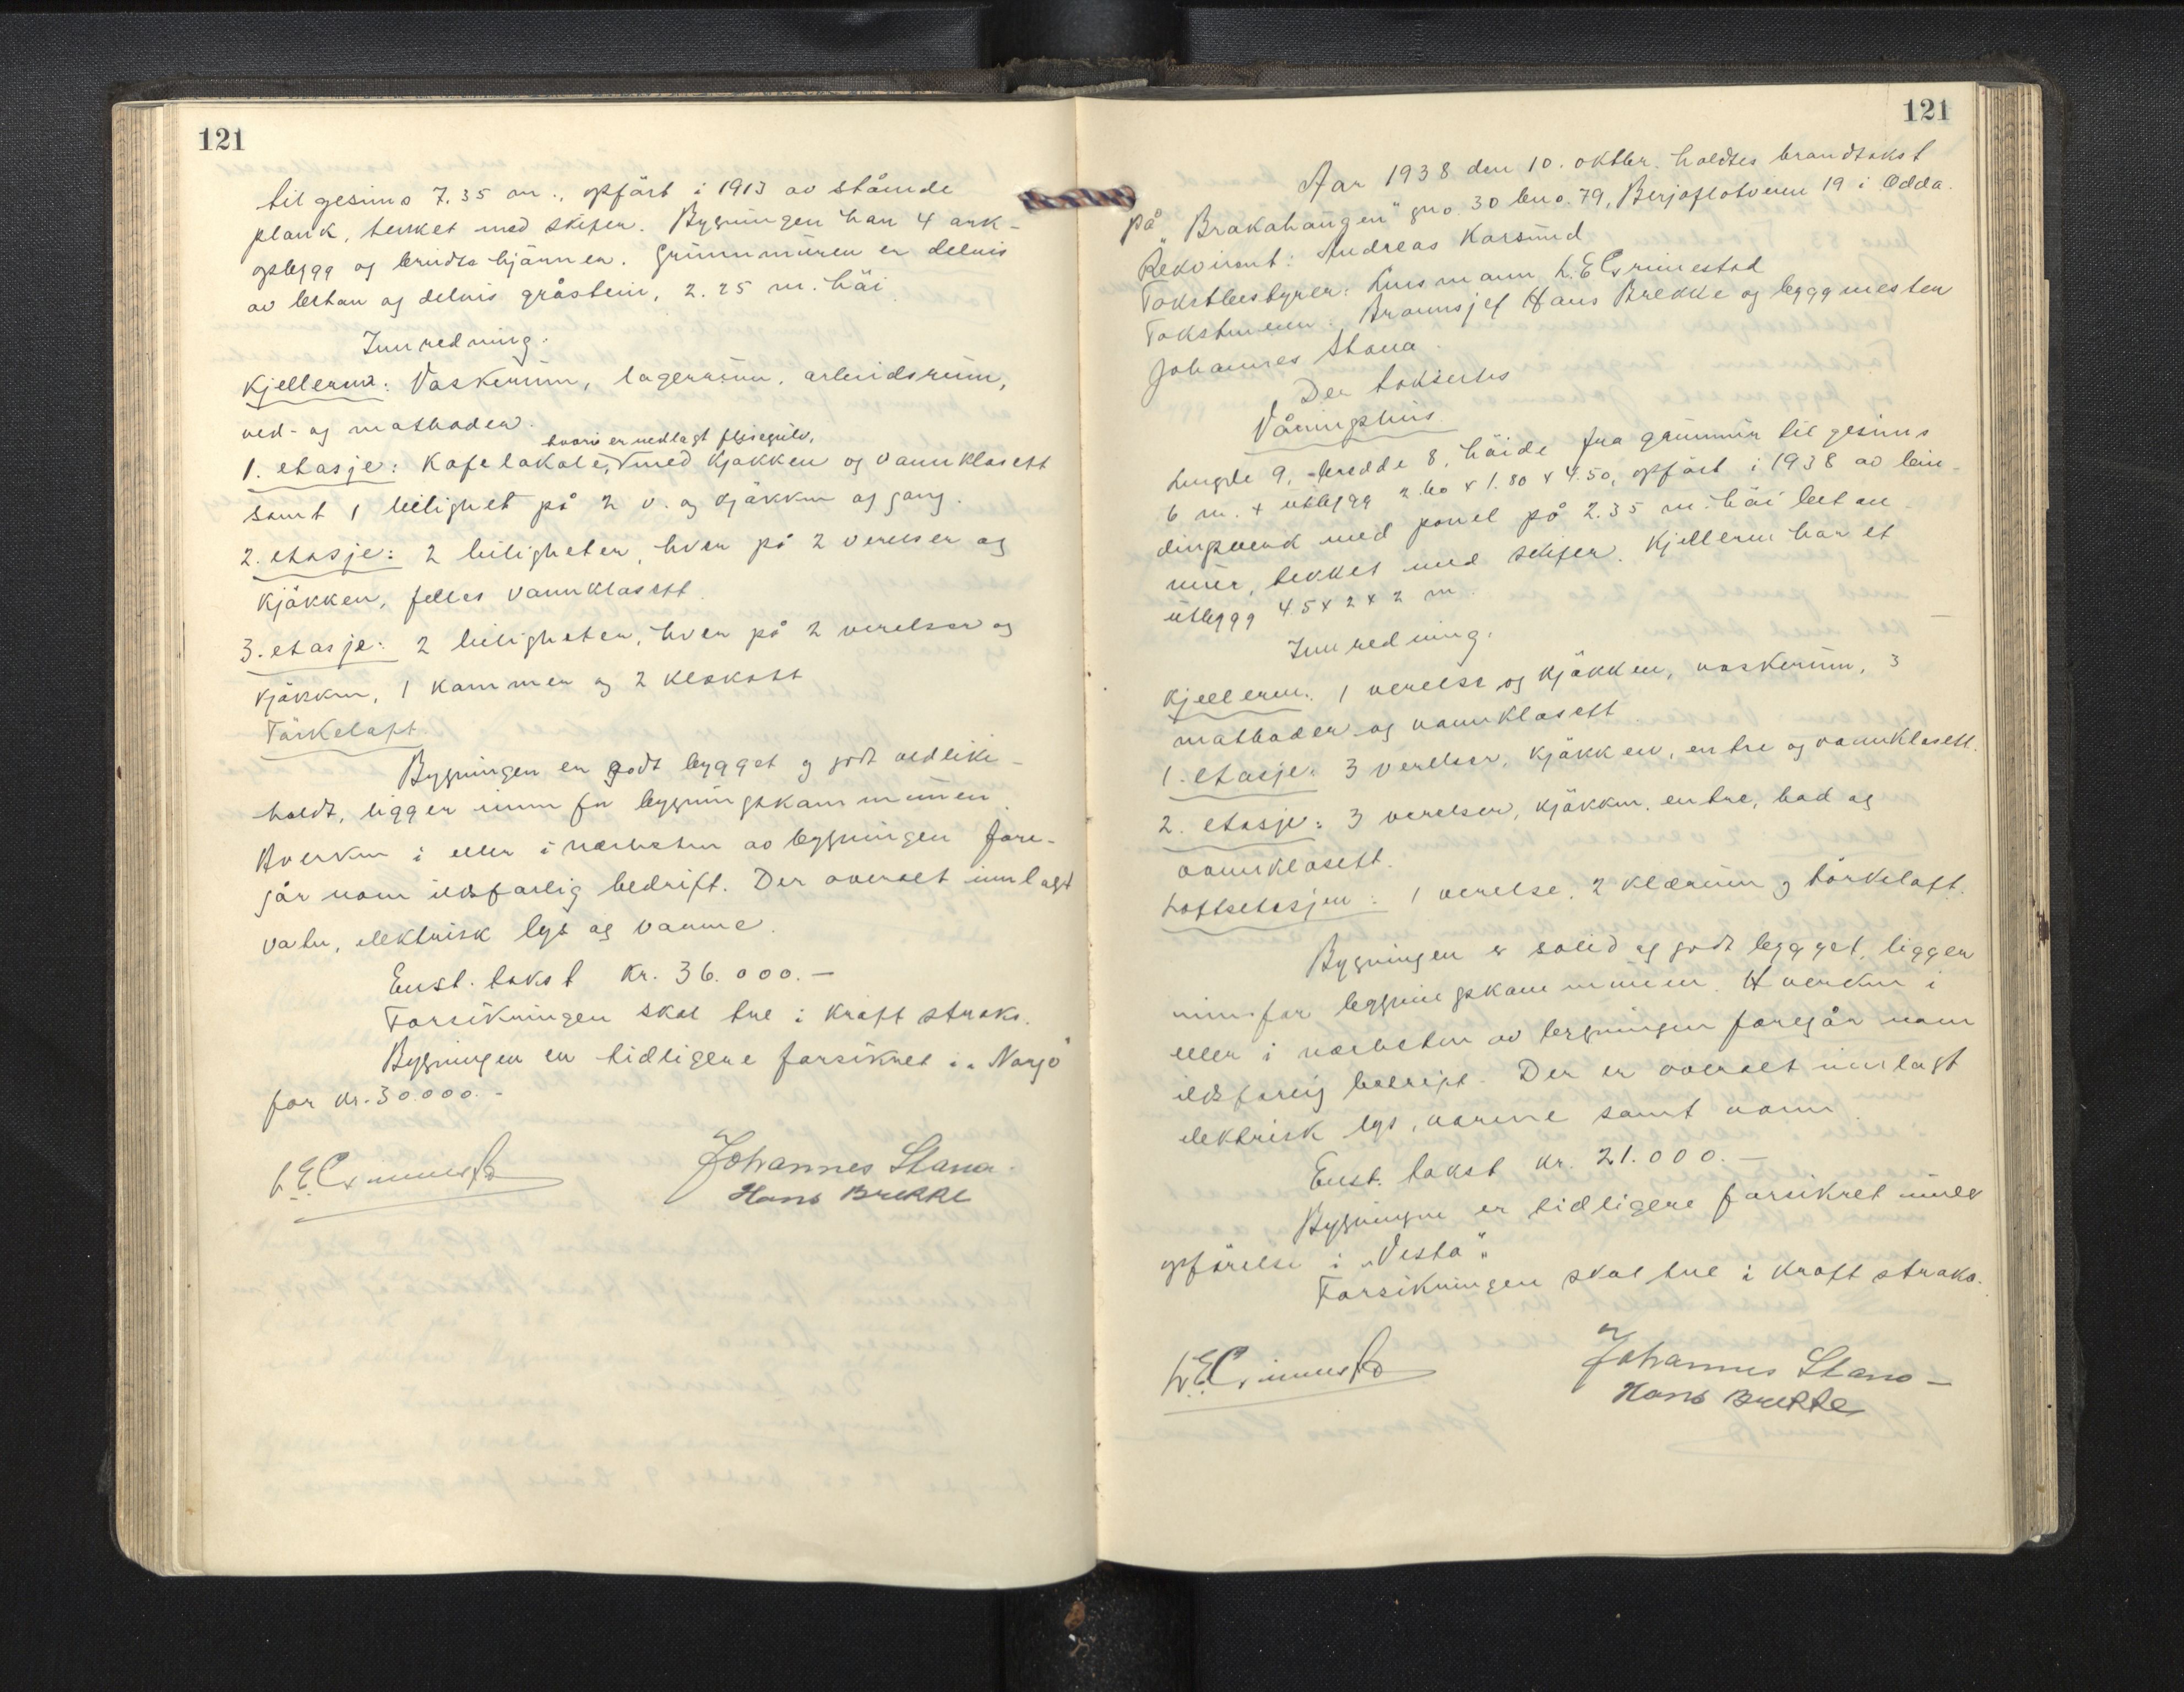 121
til gesims 7.35 m., opført i 1913 av stående
plank, tekket med skifer. Bygningen har 4 ark-
opbygg og brudte hjørner. Grunnmuren er delvis
av beton og delvis gråstein, 2.25 m. høi.
Innredning.
Kjelleren: Vaskerum, lagerrum, arbeidsrum,
ved- og matboder.
hvori er nedlagt flisegulv,
1. etasje: Kafelokale, med kjøkken og vannklosett
samt 1 leilighet på 2 v. og kjøkken og gang.
2. etasje: 2 leiligheter, hver på 2 verelser og
kjøkken, felles vannklosett.
3. etasje: 2 leiligheter, hver på 2 verelser og
kjøkken, 1 kammer og 2 kleskott
Tørkeloft.
Bygningen er godt bygget og godt vedlike-
holdt, ligger innenfor bygningskommunen.
Hverken i eller i nærheten av bygningen fore-
går noen ildsfarlig bedrift. Der overalt innlagt
vatn, elektrisk lys og varme.
Enst. takst kr. 36.000.-
Forsikringen skal tre i kraft straks.
Bygningen er tidligere forsikret i "Norge"
for kr. 30.000.-
L. E. Grimestad
Johannes Stana.
Hans Brekke
121
Aar 1938 den 10. oktbr. holdtes brandtakst
på "Brakahaugen" gno. 30 bno. 79, Berjaflotveien 19 i Odda.
Rekvirent: Andreas Korsund
Takstbestyrer: Lensmann L. E. Grimestad
Takstmenn: Brannsjef Hans Brekke og byggmester
Johannes Stana.
Der takseertes
Våningshus
Lengde 9, bredde 8, høide fra grunnmur til gesims
6 m. + utbygg 2.60 x 1.80 x 4.50, opført i 1938 av bin-
dingsverk med panel på 2.35 m. høi beton
mur, tekket med skifer. Kjelleren har et
utbygg 4.5 x 2 x 2 m.
Innredning.
Kjelleren: 1 verelse og kjøkken, vaskerum, 3
matboder og vannklosett
1. etasje: 3 verelser, kjøkken, entre og vannklosett.
2. etasje: 3 verelser, kjøkken, entre, bad og
vannklosett.
Loftsetasjen: 1 verelse, 2 klærum og tørkeloft.
Bygningen er solid og godt bygget, ligger
innenfor bygningskommunen. Hverken i
eller i nærheten av bygningen foregår noen
ildsfarlig bedrift. Der er overalt innlagt
elektrisk lys, varme samt vann.
Enst. takst kr. 21.000.-
Bygningen er tidligere forsikret under
opførelse i "Vesta".
Forsikringen skal tre i kraft straks.
L. E. Grimestad
Johannes Stana
Hans Brekke